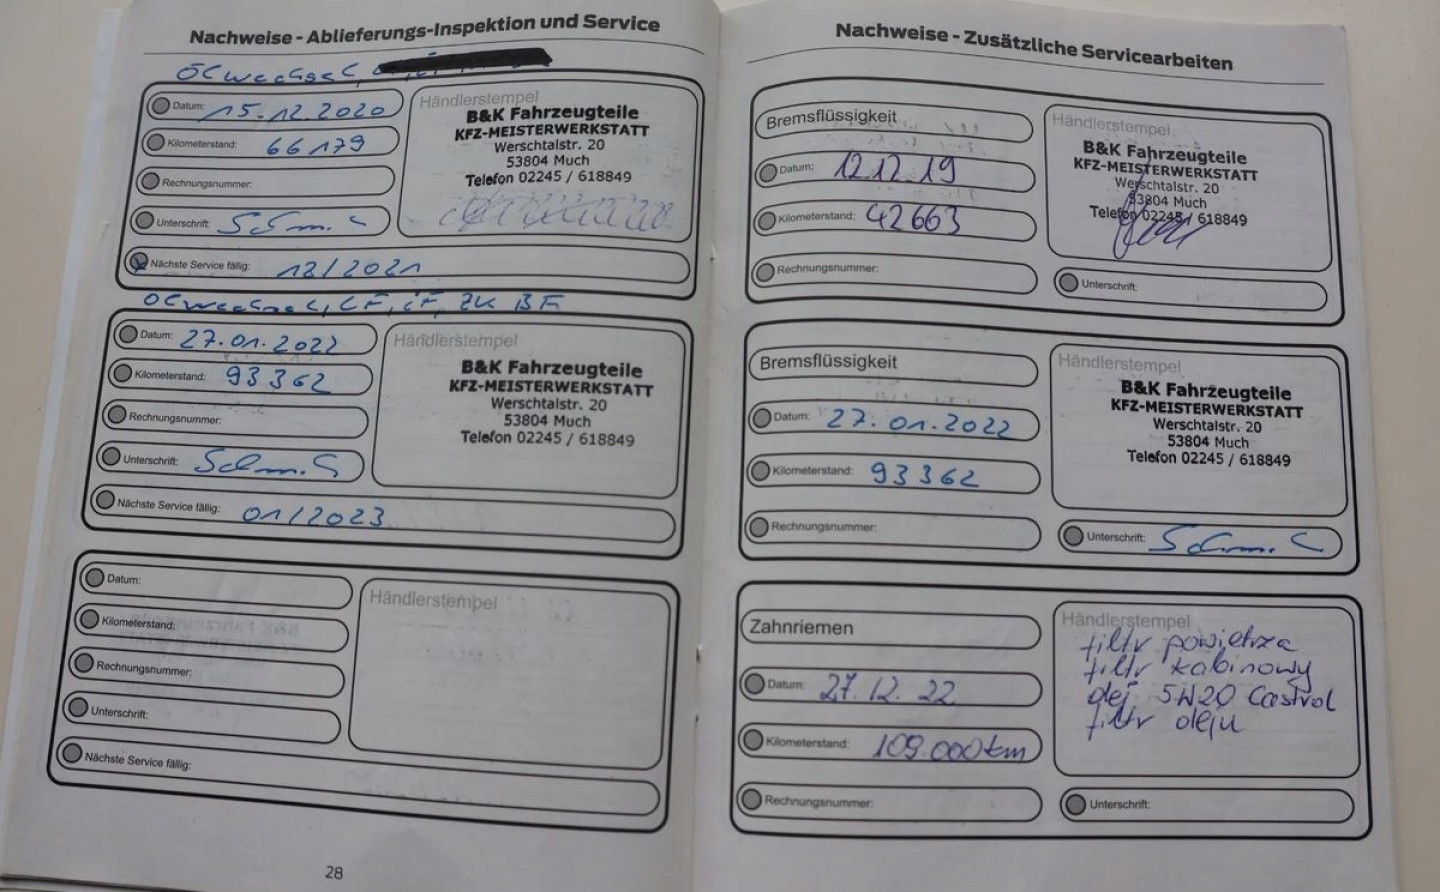 Nachweise - Ablieferungs-Inspektion und Service
Ölwechsel,
Datum: 15.12.2020
Kilometerstand: 66179
Rechnungsnummer:
Unterschrift:
Nächste Service fällig: 12/2021
Händlerstempel
B&K Fahrzeugteile
KFZ-MEISTERWERKSTATT
Werschtalstr. 20
53804 Much
Telefon 02245 / 618849
Ölwechsel, LF, iF, ZK BF
Datum: 27.01.2022
Kilometerstand: 93362
Rechnungsnummer:
Unterschrift:
Nächste Service fällig: 01/2023
Händlerstempel
B&K Fahrzeugteile
KFZ-MEISTERWERKSTATT
Werschtalstr. 20
53804 Much
Telefon 02245 / 618849
Datum:
Kilometerstand:
Rechnungsnummer:
Unterschrift:
Nächste Service fällig:
Händlerstempel
28
Nachweise - Zusätzliche Servicearbeiten
Bremsflüssigkeit
Datum: 12.12.19
Kilometerstand: 42663
Rechnungsnummer:
Händlerstempel
B&K Fahrzeugteile
KFZ-MEISTERWERKSTATT
Werschtalstr. 20
53804 Much
Telefon 02245 / 618849
Unterschrift:
Bremsflüssigkeit
Datum: 27.01.2022
Kilometerstand: 93362
Rechnungsnummer:
Händlerstempel
B&K Fahrzeugteile
KFZ-MEISTERWERKSTATT
Werschtalstr. 20
53804 Much
Telefon 02245 / 618849
Unterschrift:
Zahnriemen
Datum: 27.12.22
Kilometerstand: 109.000km
Rechnungsnummer:
Händlerstempel
filtr powietrza
filtr kabinowy
olej 5W20 Castrol
filtr oleju
Unterschrift: